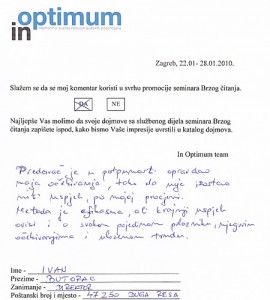 in optimum
Zagreb, 22.01- 28.01.2010.
Slažem se da se moj komentar koristi u svrhu promocije seminara Brzog
čitanja.
DA NE
Najljepše Vas molimo da svoje dojmove sa službenog dijela seminara Brzog
čitanja zapišete ispod, kako bismo Vaše impresije uvrstili u katalog dojmova.
In Optimum team
Predavač je u potpunosti opravdao
moja očekivanja, tako da nije izostao
niti uspjeh, po mojoj procjeni.
Metoda je efikasna, ali krajnji uspjeh
ovisi i o svakom pojedinom polazniku, njegovim
očekivanjima i uloženom trudu.
Ime - IVAN
Prezime - BUTORAC
Zanimanje - DIREKTOR
Poštanski broj i mjesto - 47250 DUGA RESA